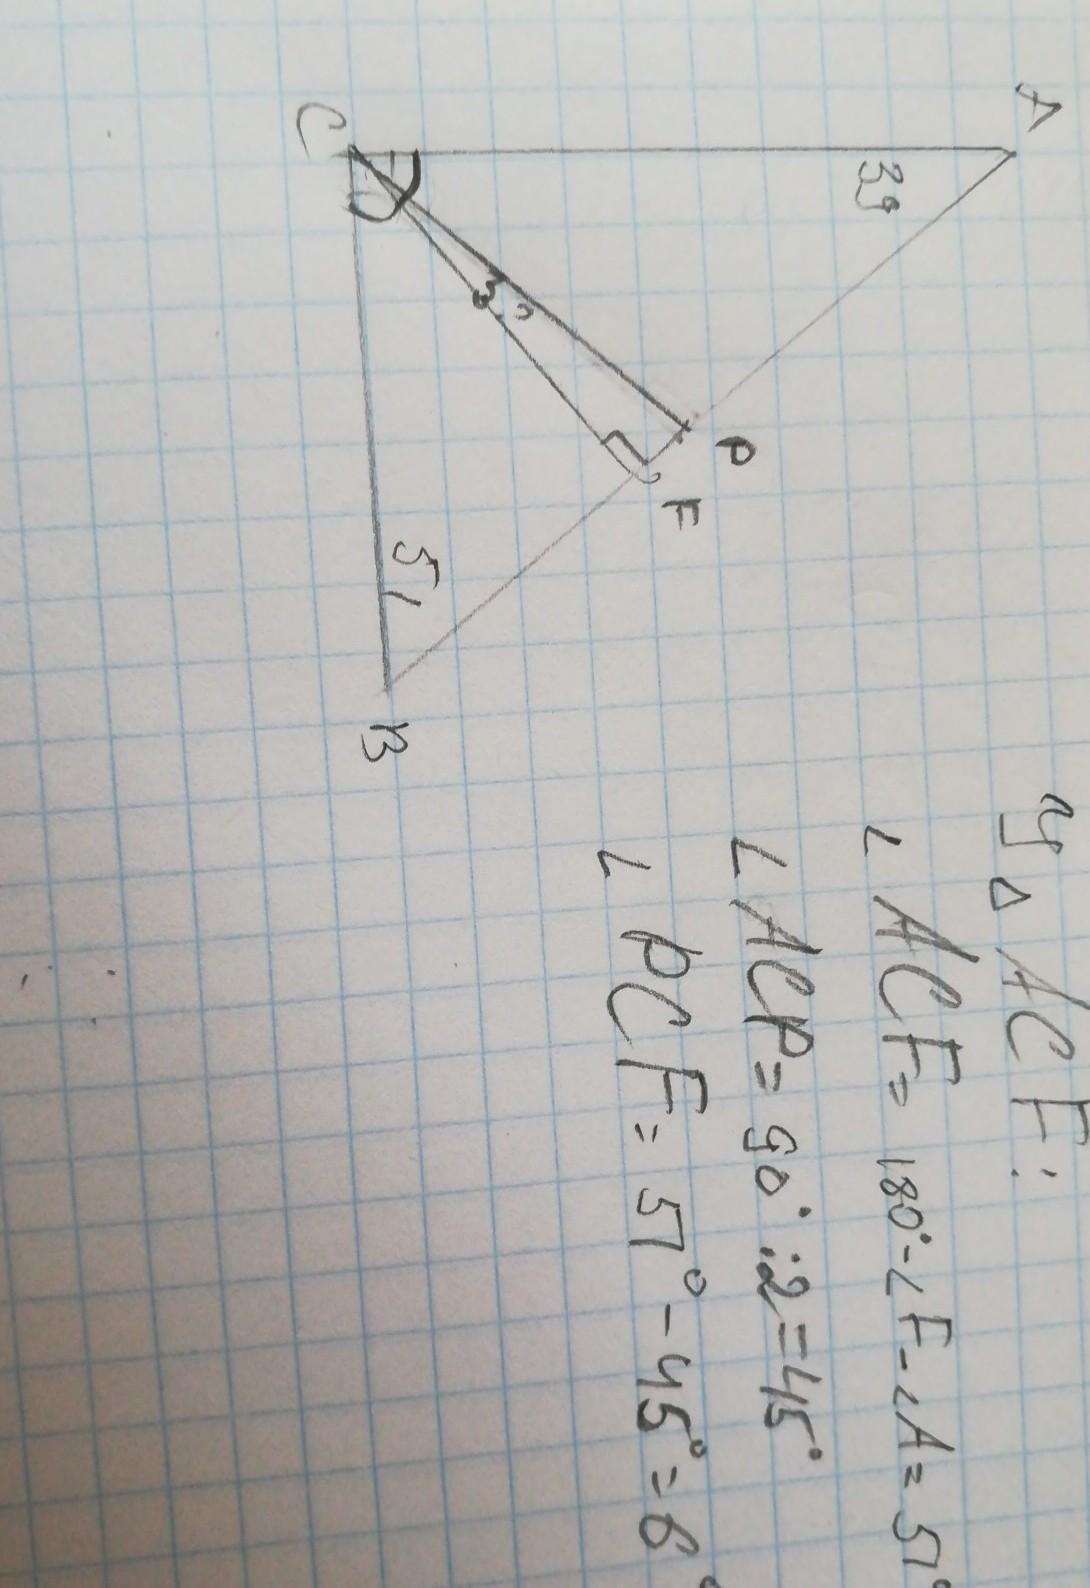 A
39
C
3°
P
F
51
B
У △ ACF:
∠ ACF = 180° - ∠F - ∠A = 51°
∠ ACP = 90° : 2 = 45°
∠ PCF = 51° - 45° = 6°